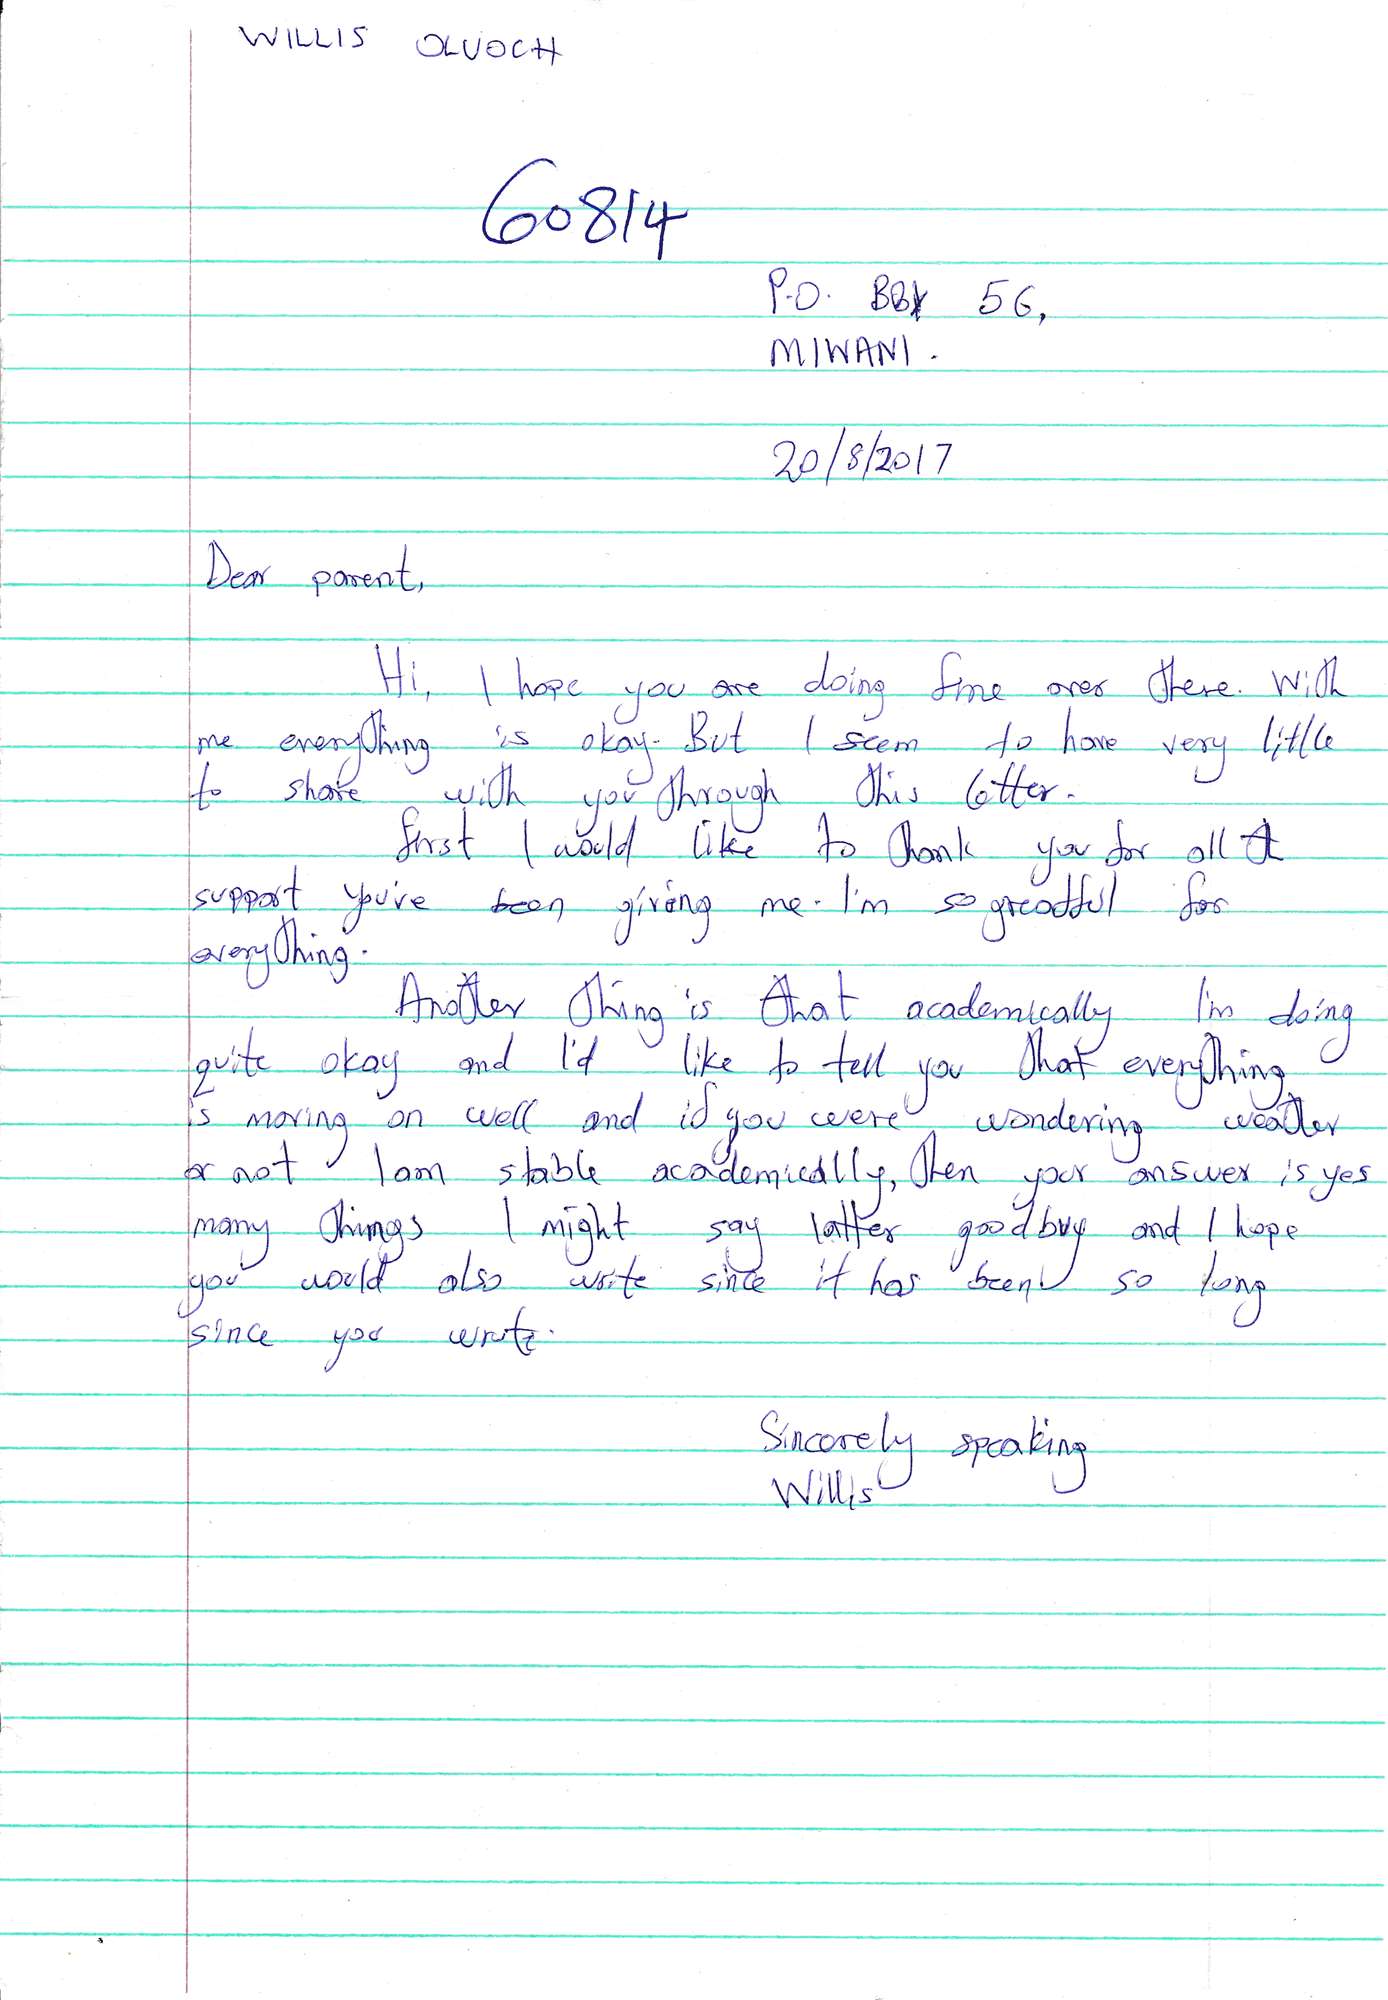 WILLIS OLUOCH
60814
P.O. BOX 56,
MIWANI.
20/8/2017
Dear parent,
Hi, I hope you are doing fine over there. With
me everything is okay. But I seem to have very little
to share with you through this letter.
first I would like to thank you for all
support you've been giving me. I'm so greadful for
everything.
Another thing is that academically I'm doing
quite okay and I'd like to tell you that everything
is moving on well and if you were wondering weather
or not I am stable academically, then your answer is yes
many things I might say latter goodbuy and I hope
you would also write since it has been so long
since you write.
Sincerely speaking
Willis